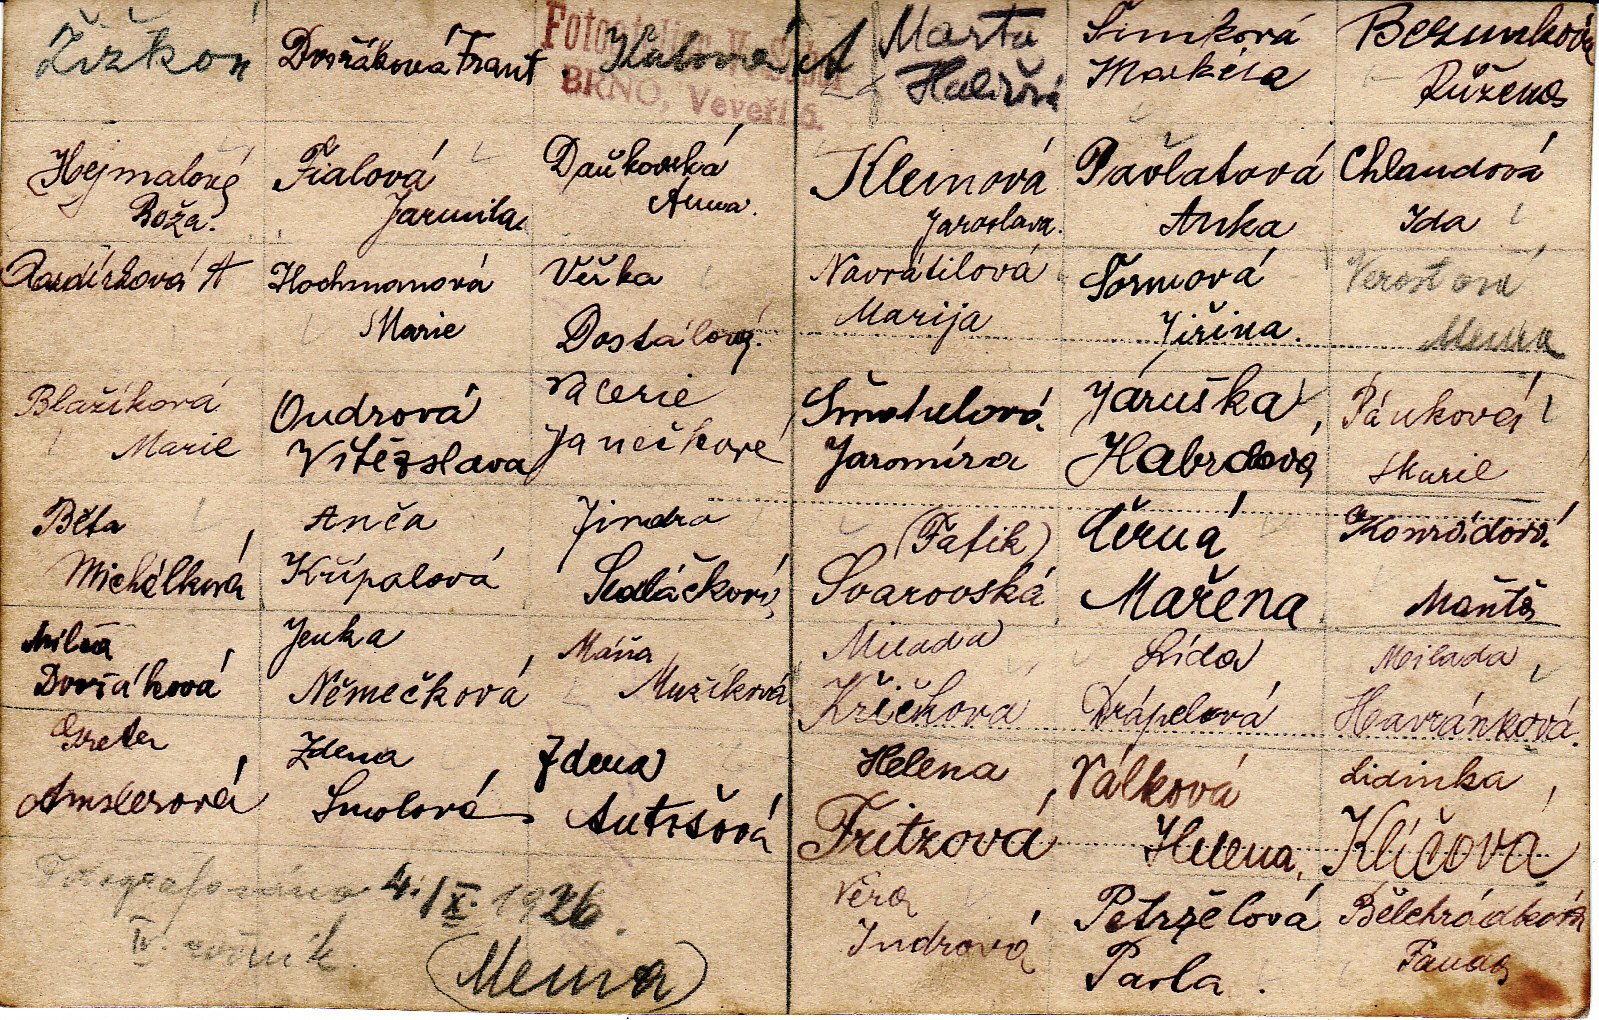 Žižkov
Dvořáková Frant.
Fotoatelier
BRNO, Veveří 6.
A
Marta
Halířová
Šimková
Markéta
Bezunková
Růžena
Hejmalová
Boža.
Fialová
Jarmila
Daňkovská
Anna.
Kleinová
Jaroslava.
Pavlatová
Anka
Chlandová
Ida
A
Hochmanová
Marie
Věrka
Dostálová.
Navrátilová
Marija
Šormová
Jiřina.
Mema
Blažíková
Marie
Oudrová
Vítězslava
Valerie
Janečkové
Šmotulová.
Jaromíra
Jaruška
Habrdová
Pánková
Marie
Běta
Michálková
Anča
Křípalová
Jindra
Sedláčková
(Fafik)
Svarovská
Černá
Mařena
Konrádová.
Mařťa
Milča
Dvořáková
Jenka
Němečková
Máňa
Muzíková
Milada
Křičkova
Lída
Drápelová
Milada
Havránková.
Greter
Amslerová
Zdena
Smolová
Zdena
Antišová
Helena
Fritzová
Válková
Helena,
Lidinka
Klíčová
Fotografováno 4./X. 1926.
IV. ročník.
(Mema)
Věra
Indrová
Petrželová
Pavla.
Bělehrádková
Fanda